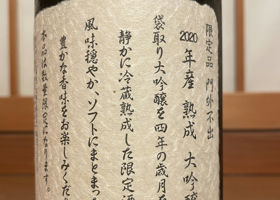 限定品 門外不出
2020年産 熟成 大吟醸
袋取り大吟醸を四年の歳月を
静かに冷蔵熟成した限定酒
風味穏やか、ソフトにまとまっ
豊かな香味をお楽しみくだ
本品は数量限定になります。